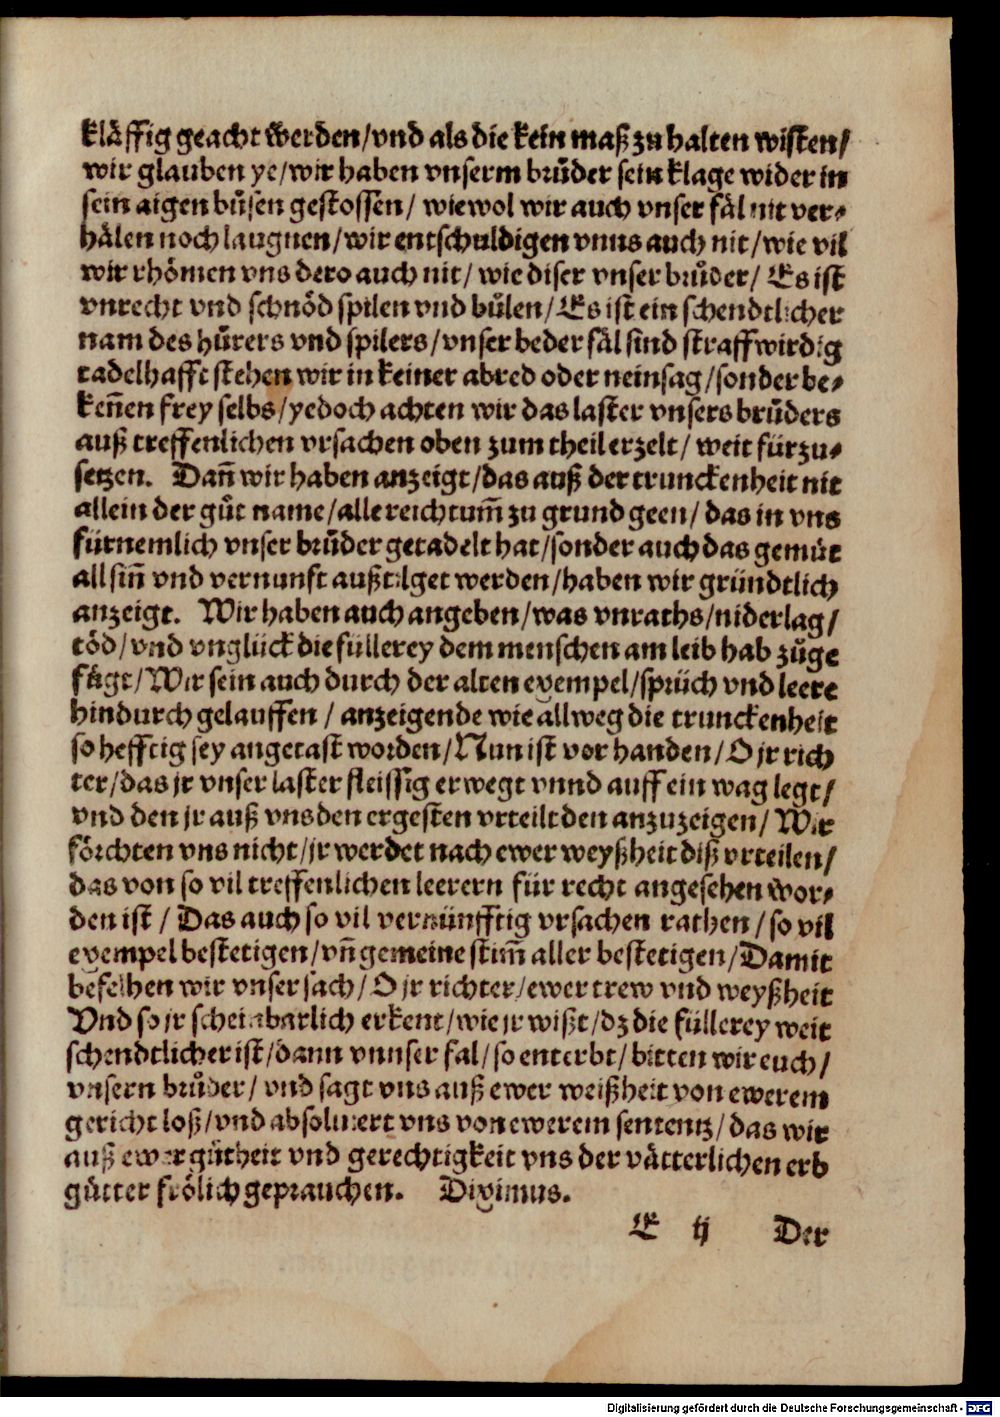 kläffig geacht werden/vnd als die kein maß zu halten wisten/
wir glauben ye/wir haben vnserm brůder sein klage wider in
sein aigen bůsen gestossen/ wiewol wir auch vnser fäl nit ver⸗
hälen noch laugnen/wir entschuldigen vnns auch nit/wie vil
wir rhömen vns dero auch nit/ wie diser vnser brůder/ Es ist
vnrecht vnd schnöd spilen vnd bůlen/ Es ist ein schendtlicher
nam des hůrers vnd spilers/vnser beder fäl sind straffwirdig
tadelhafft stehen wir in keiner abred oder neinsag/sonder be⸗
keñen frey selbs/yedoch achten wir das laster vnsers brůders
auß treffenlichen vrsachen oben zum theil erzelt/ weit fürzu⸗
setzen. Dañ wir haben anzeigt/das auß der trunckenheit nit
allein der gůt name/alle reichtum̃ zu grund geen/ das in vns
fürnemlich vnser brůder getadelt hat/sonder auch das gemüt
all siñ vnd vernunft außtilget werden/haben wir gründtlich
anzeigt. Wir haben auch angeben/was vnraths/niderlag/
töd/vnd vnglück die füllerey dem menschen am leib hab zůge
fůgt/Wir sein auch durch der alten exempel/sprüch vnd leere
hindurch gelauffen / anzeigende wie allweg die trunckenheit
so hefftig sey angetast worden/Nun ist vor handen/O jr rich
ter/das jr vnser laster fleissig erwegt vnnd auff ein wag legt/
vnd den jr auß vns den ergesten vrteilt den anzuzeigen/ Wir
förchten vns nicht/jr werdet nach ewer weyßheit diß vrteilen/
das von so vil treffenlichen leerern für recht angesehen wor⸗
den ist / Das auch so vil vernünfftig vrsachen rathen/so vil
exempel bestetigen/vñ gemeine stim̃ aller bestetigen/Damit
befelhen wir vnser sach/O jr richter/ewer trew vnd weyßheit
Vnd so jr scheinbarlich erkent/wie jr wißt/dz die füllerey weit
schendtlicher ist/dann vnnser fal/so enterbt/bitten wir euch/
vnsern brůder/ vnd sagt vns auß ewer weißheit von ewerem
gericht loß/vnd absoluiert vns von ewerem sententz/das wir
auß ewer gůtheit vnd gerechtigkeit vns der vätterlichen erb
gütter frölich geprauchen. Diximus.
E ij Der
Digitalisierung gefördert durch die Deutsche Forschungsgemeinschaft - DFG